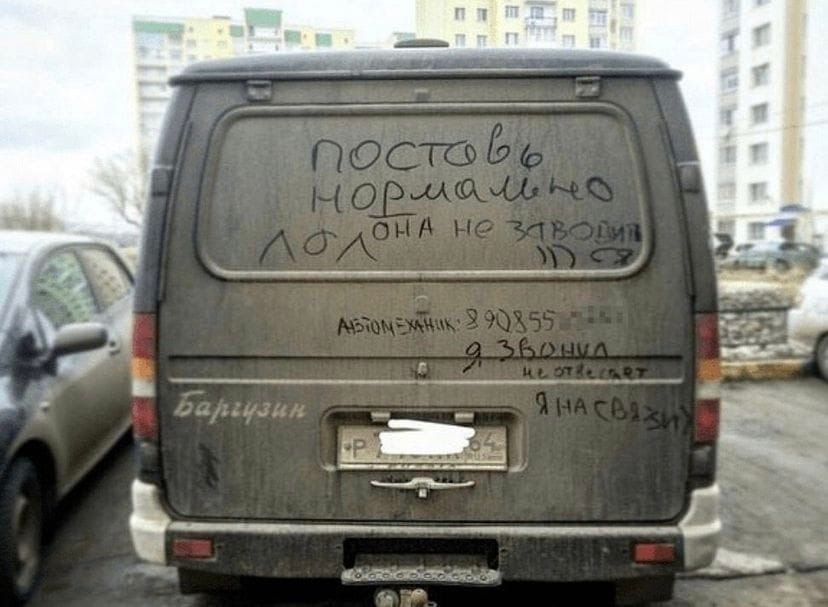 поставь
нормально
лол она не заводит
))) ся
Автомеханик: 890855
я звонил
не отвечает
Баргузин
Я НА СВЯЗИ
Р 64
RUS